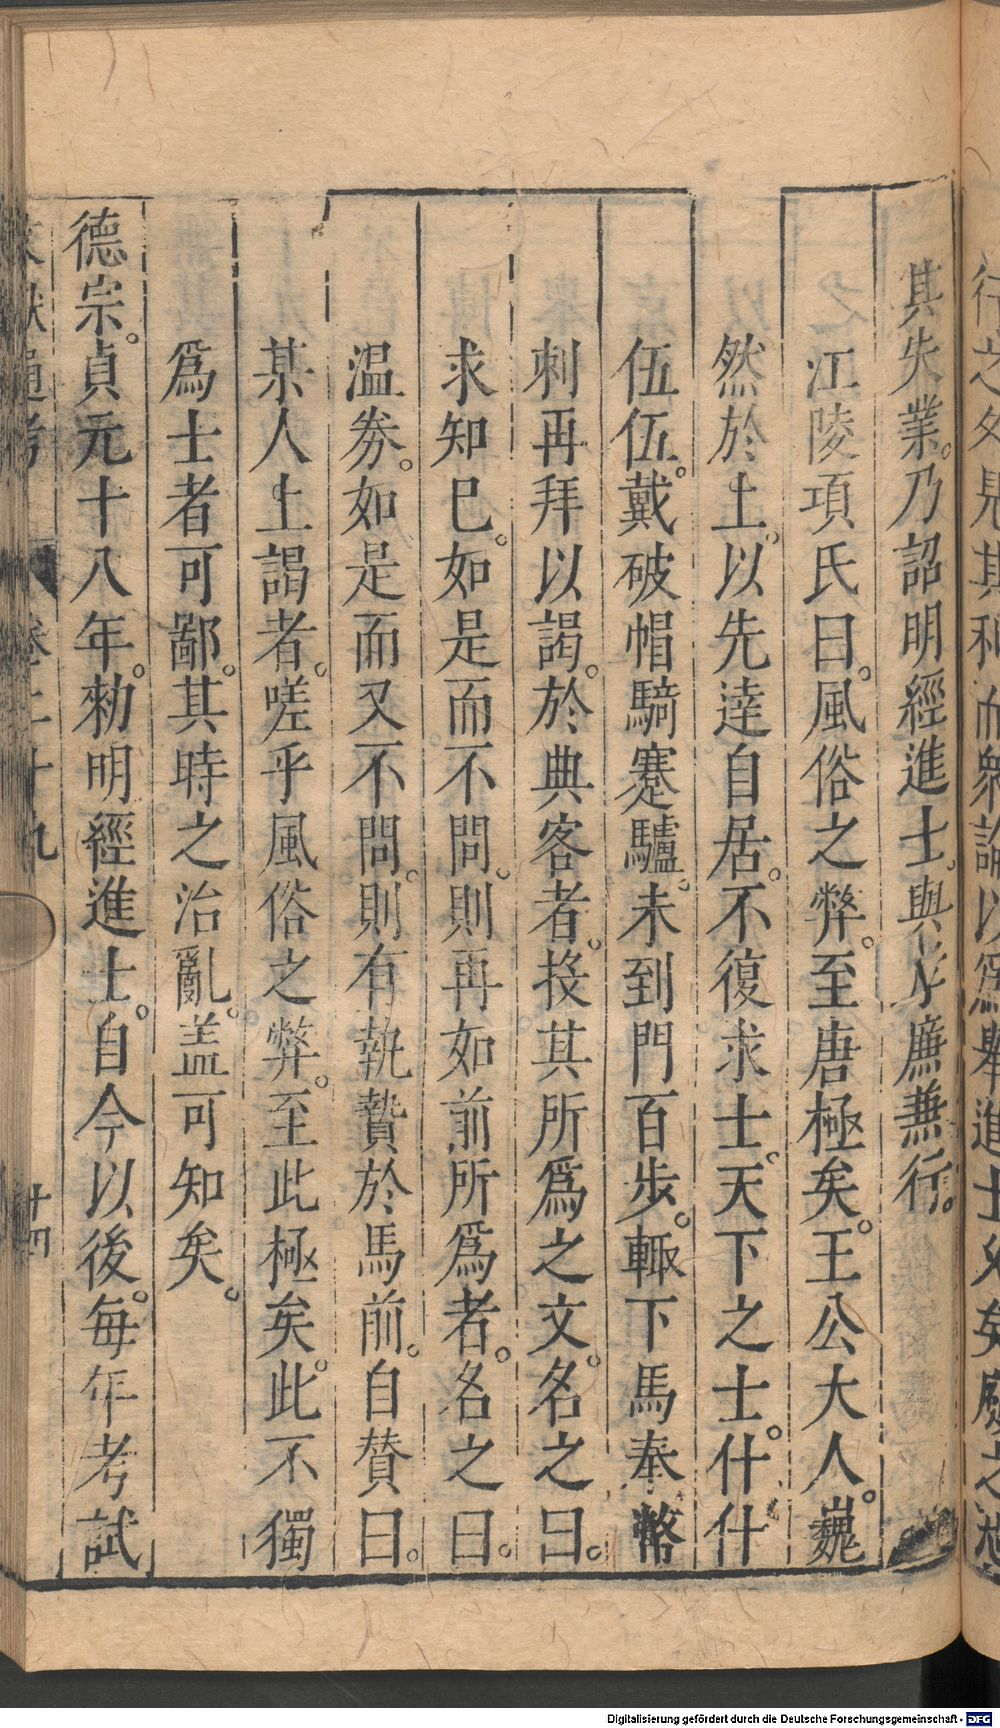 其失業。乃詔明經進士。與孝廉兼行。
江陵項氏曰。風俗之弊。至唐極矣。王公大人。巍
然於上。以先達自居。不復求士。天下之士。什什
伍伍。戴破帽騎蹇驢。未到門百步。輙下馬奉幣
刺再拜以謁。於典客者。投其所爲之文。名之曰。
求知己。如是而不問。則再如前所爲者。名之曰。
温劵。如是而又不問。則有執贄於馬前。自賛曰。
某人上謁者。嗟乎風俗之弊。至此極矣。此不獨
爲士者可鄙。其時之治亂。盖可知矣。
德宗。貞元十八年。勑明經進士。自今以後。每年考試
卷二十九
十四
Digitalisierung gefördert durch die Deutsche Forschungsgemeinschaft - DFG